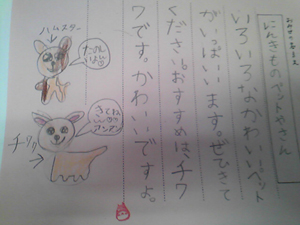 にんきものペットやさん
いろいろなかわいいペット
がいっぱいいます。ぜひきて
ください。おすすめは、チワ
ワです。かわいいですよ。
ハムスター
チワワ